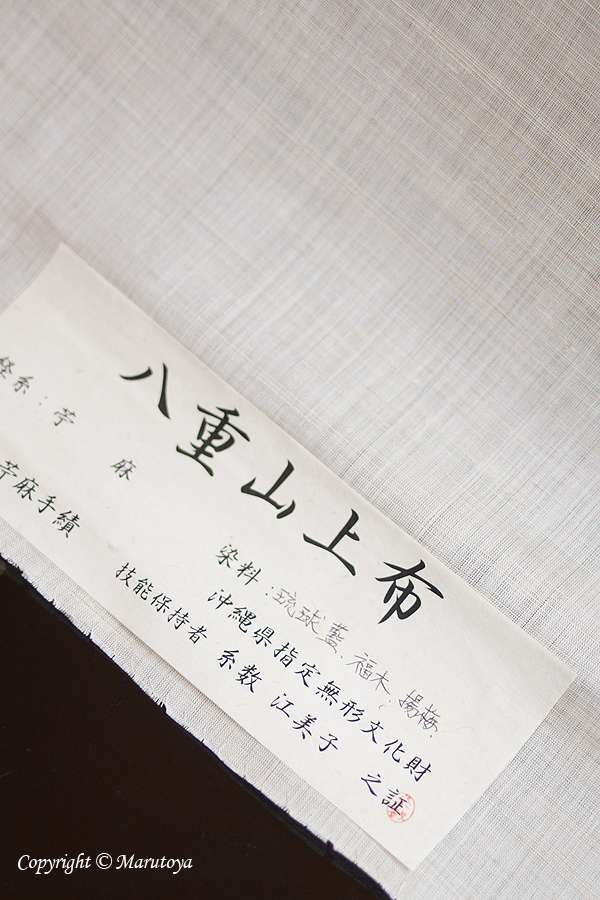 八重山上布
経糸：苧麻
苧麻手績
染料：琉球藍、福木、揚梅、
沖縄県指定無形文化財
技能保持者 糸数 江美子 之証
Copyright © Marutoya